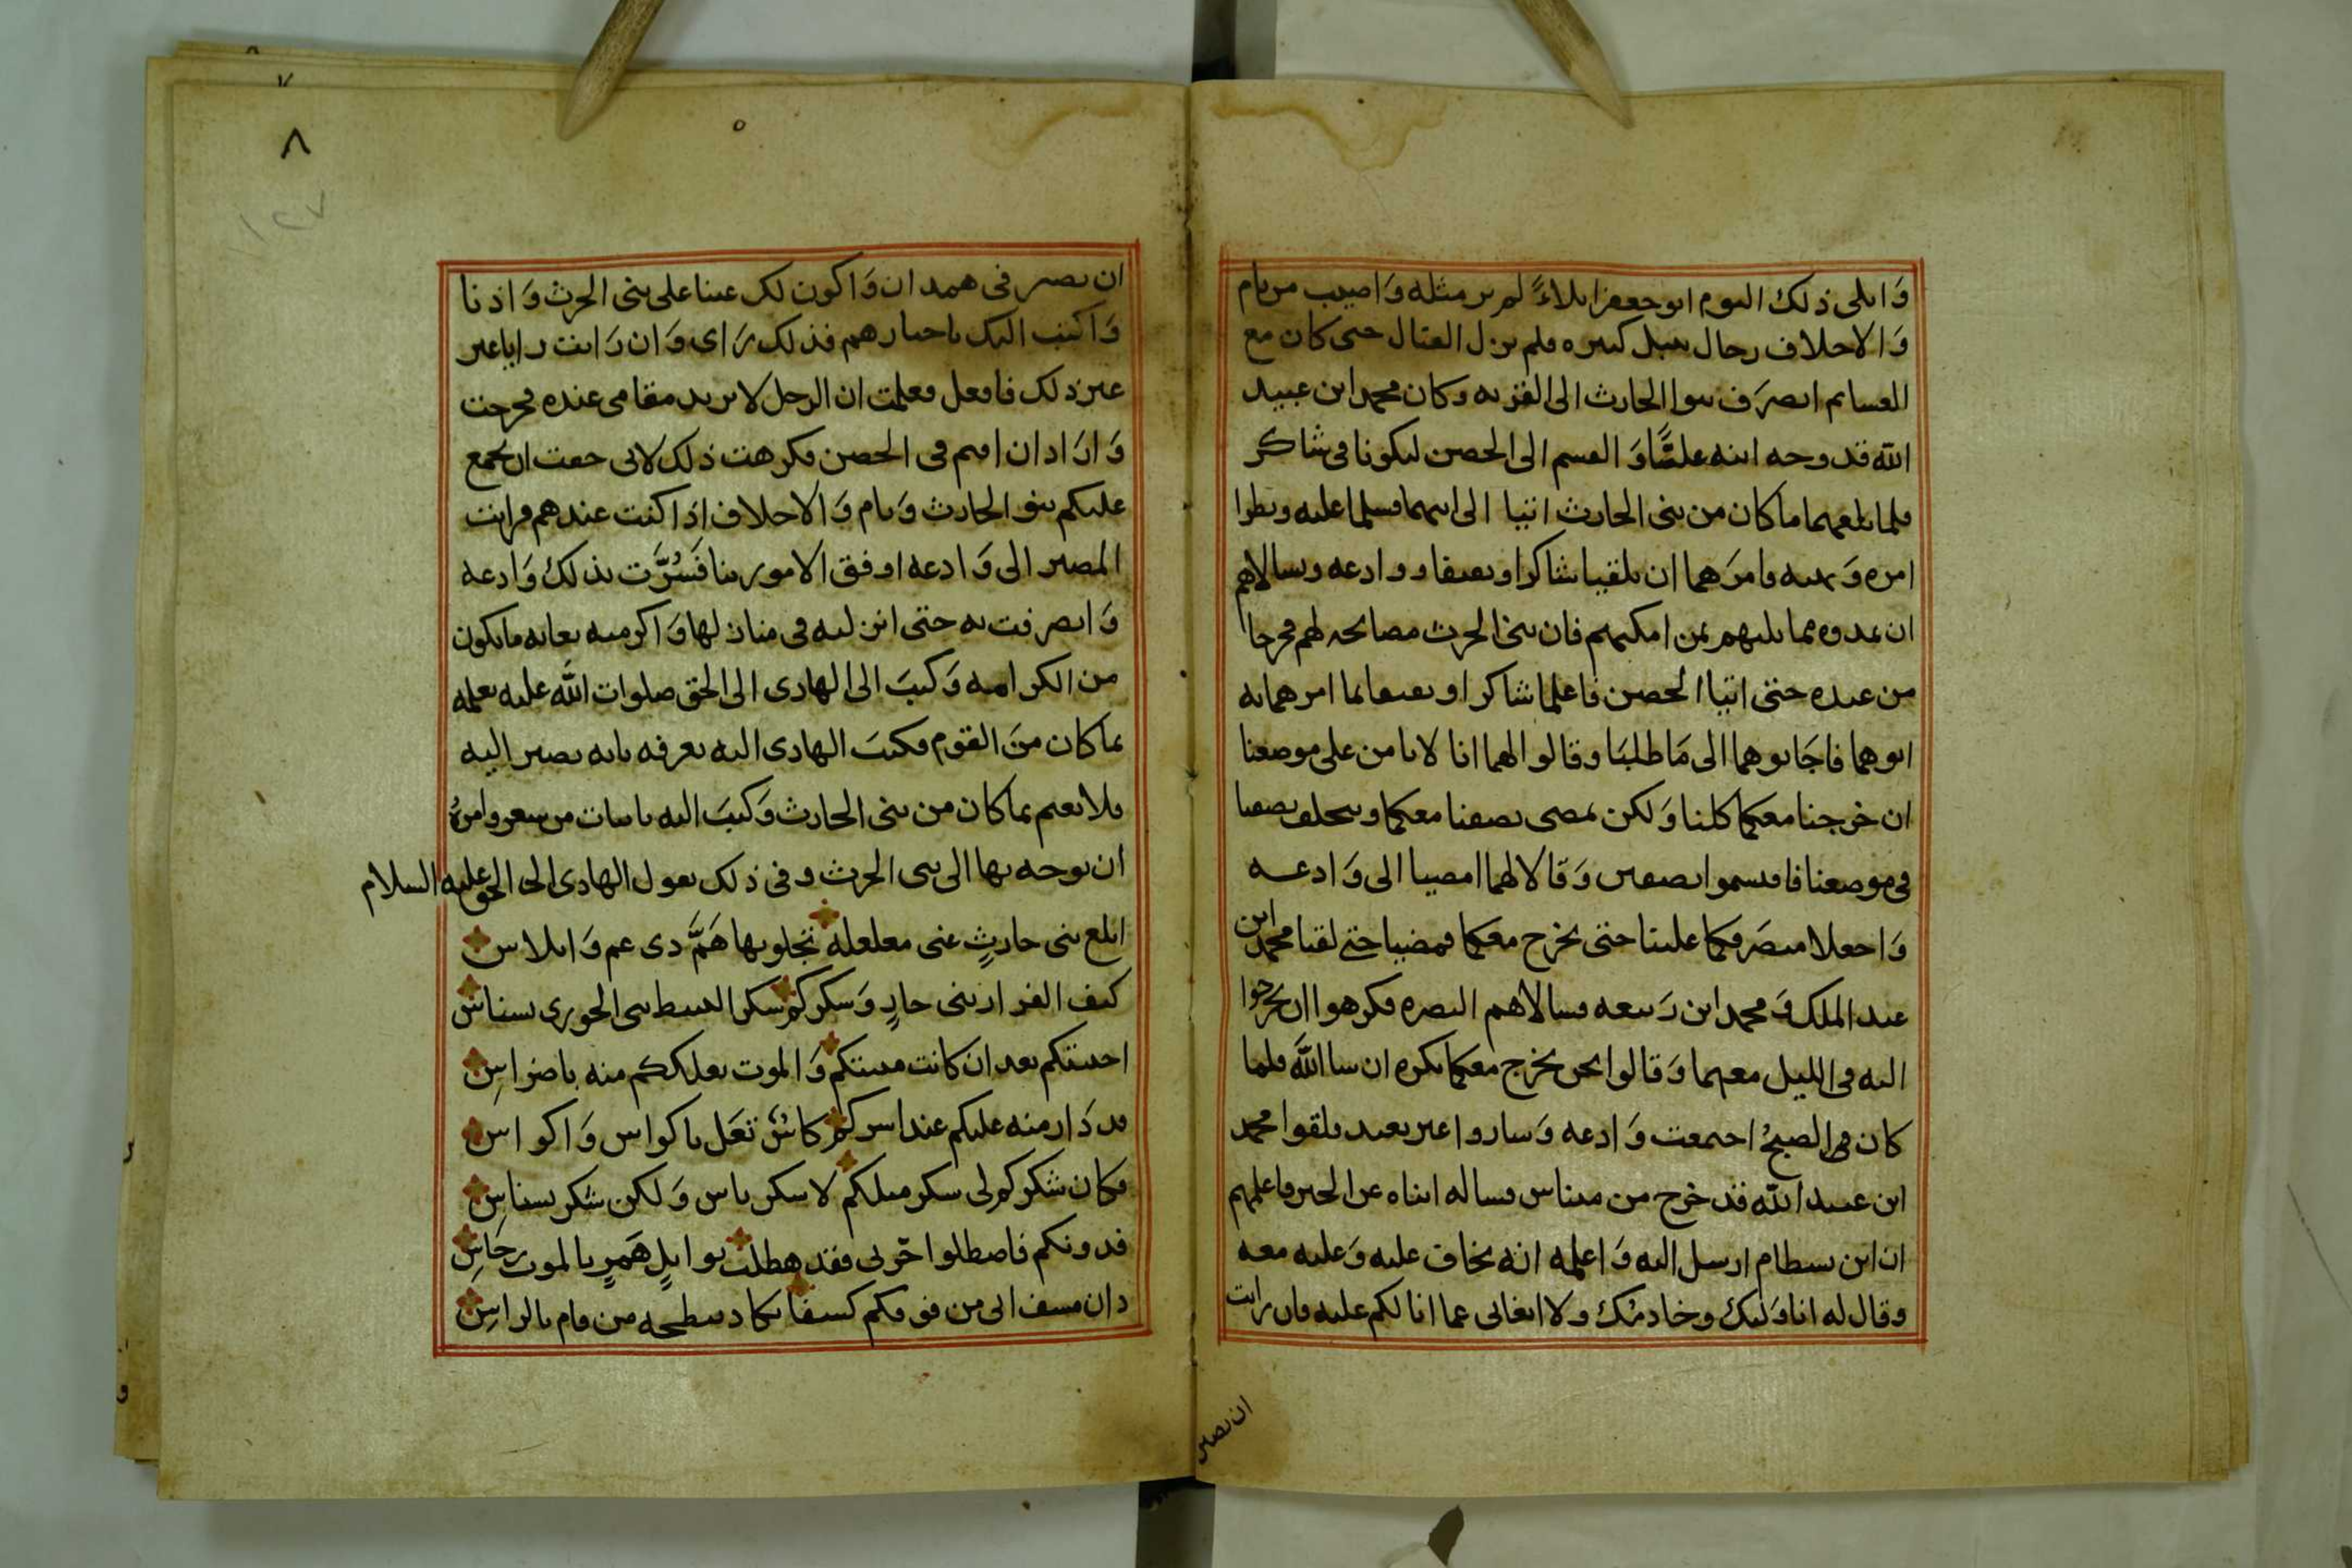 وَابلى ذلك اليوم ابو جعفر ابلاءً لم ير مثله وَاصيب من يام
وَالاحلاف رجال قبل كثيره فلم يزل القتال حتى كان مع
العسايم انصرَف بنوا الحارث الى القريه وكان محمد ابن عبيد
الله قد وجه ابنه عليًّا وَالقسم الى الحصن ليكونا في شاكر
فلما بلغهما ما كان من بني الحارث اتيا الى ابيهما فسلما عليه ونظرا
امره وَنهيه فامرَهما ان يلقيا شاكرا ويعيقا ووادعه ويسالاهم
ان يمدوه مما يليهم بمن امكنهم فان بني الحرث مصابحه لهم فخرجا
من عنده حتى اتيا الحصن فاعلما شاكرا ويعيقا بما امرهما به
ابوهما فاجَابوهما الى مَا طلبَا وقالوا لهما انا لا نامن على موضعنا
ان خرجنا معكما كلنا وَلكن يمضى نصفنا معكما ويتخلف نصفنا
في موضعنا فاقتسموا نصفين وَقالا لهما امضيا الى وَادعه
وَاجعلا منصرَفكما علينا حتى نخرج معكما فمضيا حتى لقيا محمد ابن
عبد الملك وَمحمد ابن رَبيعه فسالاهم النصره فكرهوا ان يخرجوا
اليه في الليل معهما وَقالوا نحن نخرج معكما بكره ان شا اللهَ فلما
كان في الصبحُ اجتمعت وَادعه وَساروا غير بعيد فلقوا محمد
ابن عبيد الله قد خرج من ميناس فساله ابناه عن الخبر فاعلمهم
ان ابن بسطام ارسل اليه وَاعلمه انه يخاف عليه وَعليه معه
وقال له انا وَليك وخادمك ولا ابغاني عما انا لكم عليه فان رايت
ان نصير
٨
ان نصير في همدان وَاكون لك عينا على بني الحرث وَاذنا
وَاكتب اليك باخبارهم فذلك رَاى وَان رَايت رايا غير
غير ذلك فافعل فعلمت ان الرجل لا يريد مقامي عنده فخرجت
وَارَاد ان اقيم في الحصن فكرهت ذلك لاني خفت ان يجمع
عليكم بنو الحارث وَيام وَالاحلاف اذا كنت عندهم فرايت
المصير الى وَادعه اوفق الامور بنا فَسُرَّت بذلك وَادعه
وَانصرفت به حتى انزلته في منازلها وَاكرمته بغايه ما يكون
من الكرامه وَكتبَ الى الهادى الى الحق صلوات الله عليه يعلمه
بما كان منَ القوم فكتبَ الهادى اليه يعرفه بانه يصير اليه
فلا يغتم بما كان من بني الحارث وَكتبَ اليه بابيات من شعر وامرهُ
ان يوجه بها الى بنى الحرث وفي ذلك يقول الهادى الى الحق عليه السلام
ابلغ بني حارثٍ عني مغلغلة تجلو بها هَمَّ ذى غم وَابلاس
كيف الفرار بني حارٍ وَسكركم سكر البسيط بنى الحورى بسناس
احييتكم بعد ان كانت منيتكم وَالموت يعلككم منه باضراسِ
قد دَار منه عليكم عند اسركم كاسٌ تعَل باكواس وَاكواس
فكان شكركم لى سكر مثلكم لا سكر باس وَلكن شكر بسناسِ
فدونكم فاصطلوا حَربي فقد هطلت بوابلٍ هَمرٍ بالموت رجَاسِ
دان مسف الى من فوقكم كسفا يكاد يبطحه من قام بالراسِ